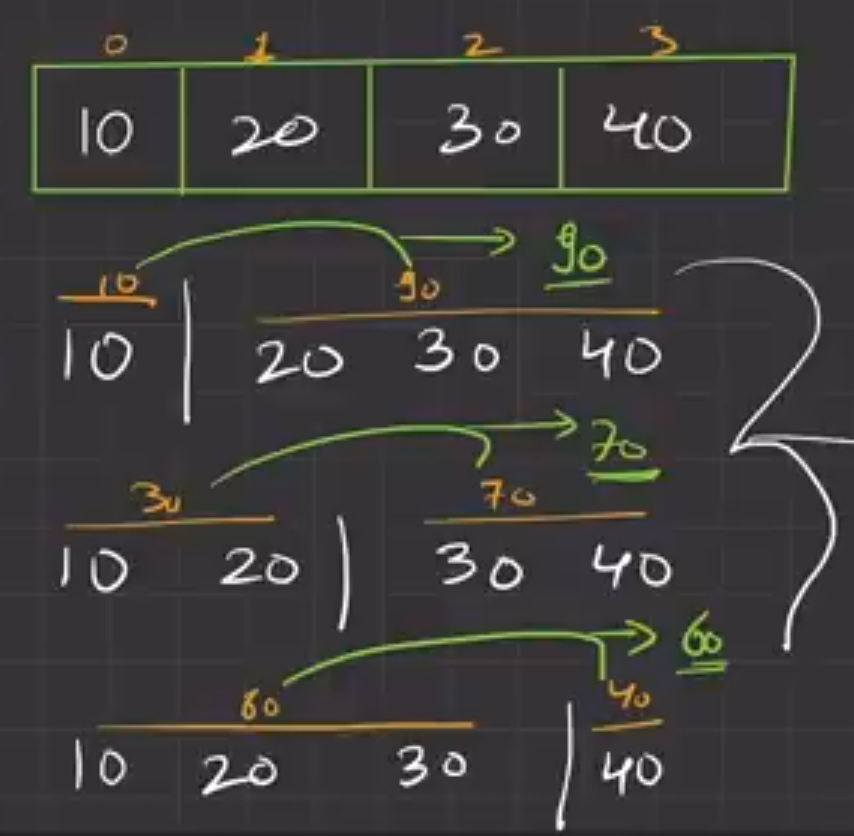 0 1 2 3
10 20 30 40
90
10 90
10 | 20 30 40
70
30 70
10 20 | 30 40
60
60 40
10 20 30 | 40